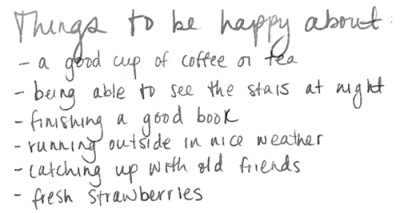 Things to be happy about:
- a good cup of coffee or tea
- being able to see the stars at night
- finishing a good book
- running outside in nice weather
- catching up with old friends
- fresh strawberries